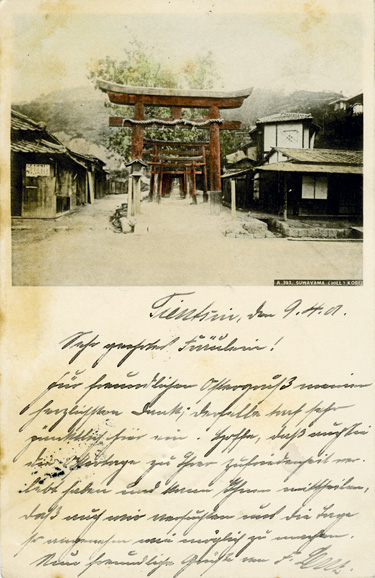 SUWAYAMA (HILL) KOBE
Tientsin, den 9.4.01.
Sehr geehrtes Fräulein!
Für freundlichen Ostergruß meinen
herzlichsten Dank; derselbe traf sehr
pünktlich hier ein. Hoffe, daß auch Sie
die Ostertage zu Ihrer Zufriedenheit ver-
lebt haben und kann Ihnen mittheilen,
daß auch wir versuchten uns die Tage
so angenehm wie möglich zu machen.
freundliche Grüße von